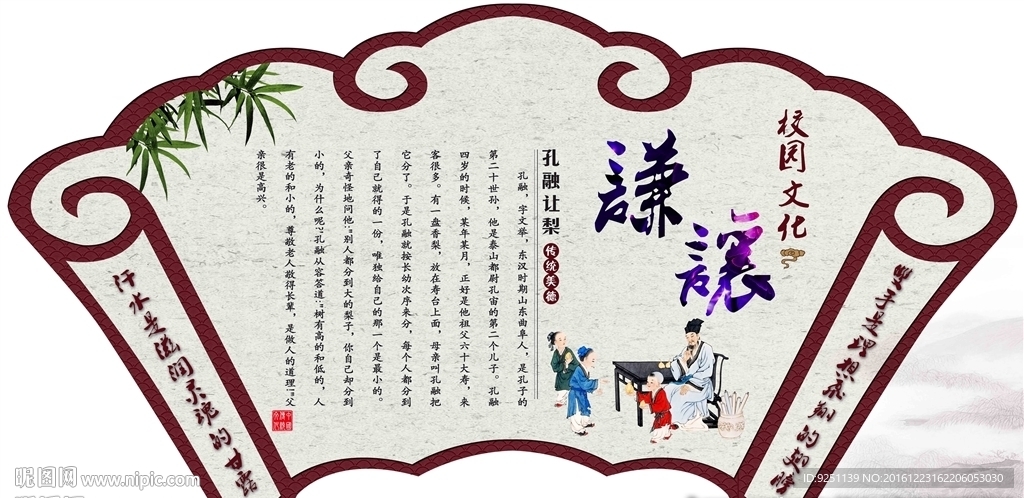 校园文化
謙讓
孔融让梨
传统美德
孔融，字文举，东汉时期山东曲阜人，是孔子的
第二十世孙，他是泰山都尉孔宙的第二个儿子。孔融
四岁的时候，某年某月，正好是他祖父六十大寿，来
客很多。有一盘香梨，放在寿台上面，母亲叫孔融把
它分了。于是孔融就按长幼次序来分，每个人都分到
了自己就得的一份，唯独给自己的那一个是最小的。
父亲奇怪地问他:"别人都分到大的梨子，你自己却分到
小的，为什么呢?"孔融从容答道:"树有高的和低的，人
有老的和小的，尊敬老人敬得长辈，是做人的道理!"父
亲很是高兴。
汗水是滋润灵魂的甘露
昵图网 www.nipic.com
ID:9251139 NO:20161223162206053030